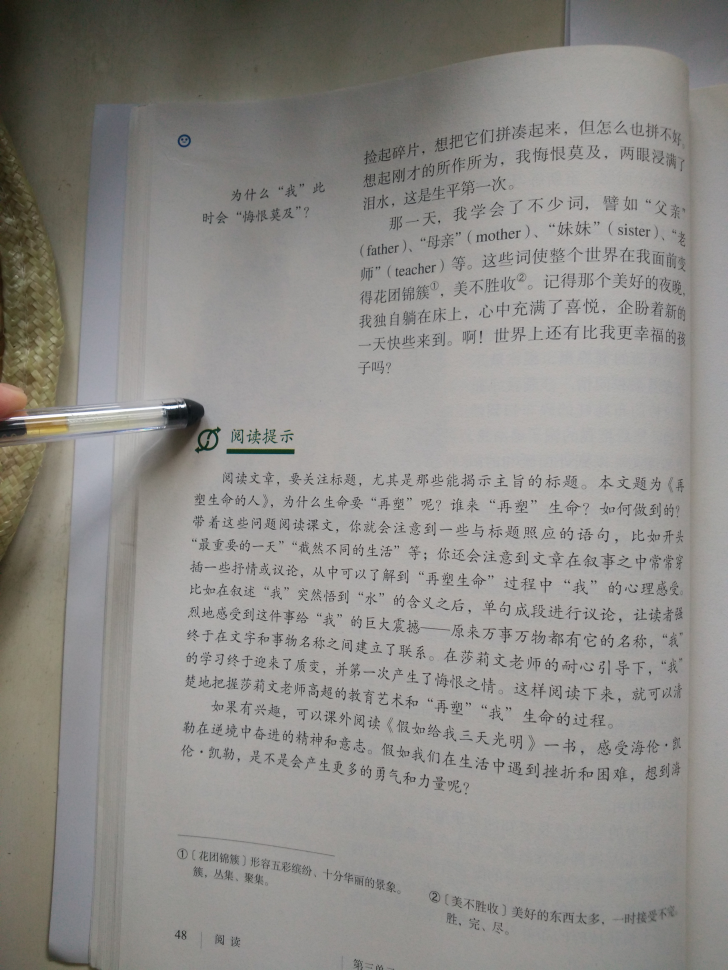 为什么“我”此
时会“悔恨莫及”？
捡起碎片，想把它们拼凑起来，但怎么也拼不好。
想起刚才的所作所为，我悔恨莫及，两眼浸满了
泪水，这是生平第一次。
那一天，我学会了不少词，譬如“父亲”
（father）、“母亲”（mother）、“妹妹”（sister）、“老
师”（teacher）等。这些词使整个世界在我面前变
得花团锦簇①，美不胜收②。记得那个美好的夜晚，
我独自躺在床上，心中充满了喜悦，企盼着新的
一天快些来到。啊！世界上还有比我更幸福的孩
子吗？
阅读提示
阅读文章，要关注标题，尤其是那些能揭示主旨的标题。本文题为《再
塑生命的人》，为什么生命要“再塑”呢？谁来“再塑”生命？如何做到的？
带着这些问题阅读课文，你就会注意到一些与标题照应的语句，比如开头
“最重要的一天”“截然不同的生活”等；你还会注意到文章在叙事之中常常穿
插一些抒情或议论，从中可以了解到“再塑生命”过程中“我”的心理感受。
比如在叙述“我”突然悟到“水”的含义之后，单句成段进行议论，让读者强
烈地感受到这件事给“我”的巨大震撼——原来万事万物都有它的名称，“我”
终于在文字和事物名称之间建立了联系。在莎莉文老师的耐心引导下，“我”
的学习终于迎来了质变，并第一次产生了悔恨之情。这样阅读下来，就可以清
楚地把握莎莉文老师高超的教育艺术和“再塑”“我”生命的过程。
如果有兴趣，可以课外阅读《假如给我三天光明》一书，感受海伦·凯
勒在逆境中奋进的精神和意志。假如我们在生活中遇到挫折和困难，想到海
伦·凯勒，是不是会产生更多的勇气和力量呢？
①〔花团锦簇〕形容五彩缤纷、十分华丽的景象。
簇，丛集、聚集。
②〔美不胜收〕美好的东西太多，一时接受不完。
胜，完、尽。
48 阅读
第三单